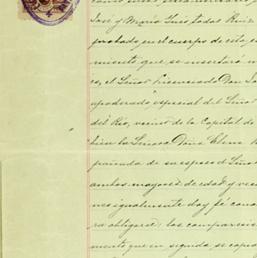 José y María Inés todas Ruiz
probado en el cuerpo de esta es
miento que se insertará
es, el Señor Licenciado Don
apoderado especial del Señor
del Río, vecino de la Capital de
bién la Señora Doña Elena
pañada de su esposo el Señor
ambos mayores de edad y veci
nes igualmente doy fé cono
ra obligarse; los comparecien
mento que en seguida se copia